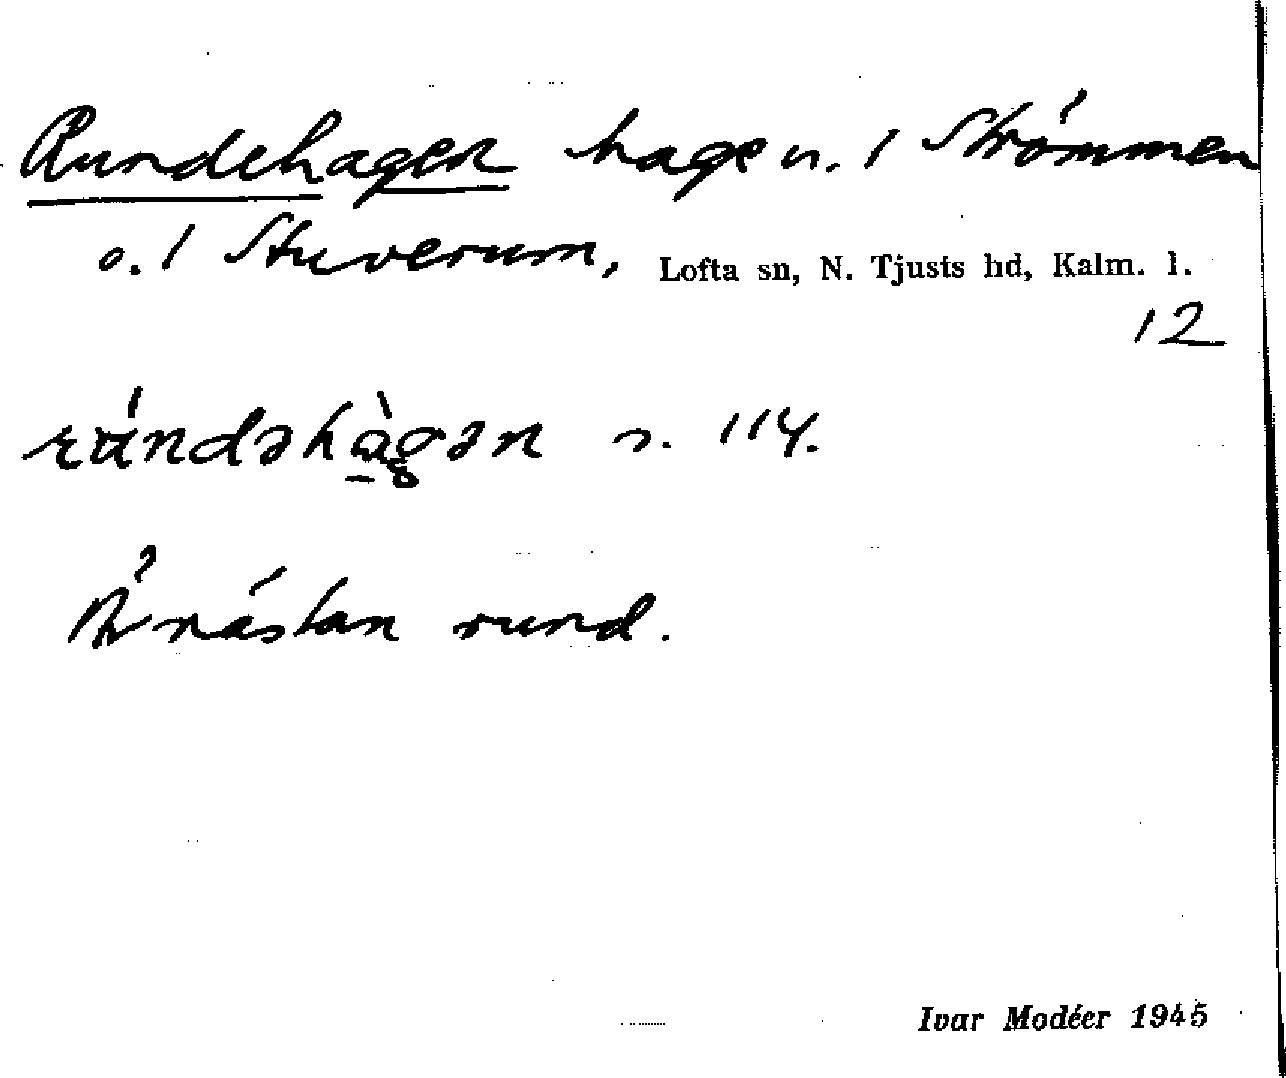 Rundehagen hage u. 1 Strömmen
o. 1 Stuverum, Lofta sn, N. Tjusts hd, Kalm. l.
12
rúndəhàgən s. 114.
Är nästan rund.
Ivar Modéer 1945